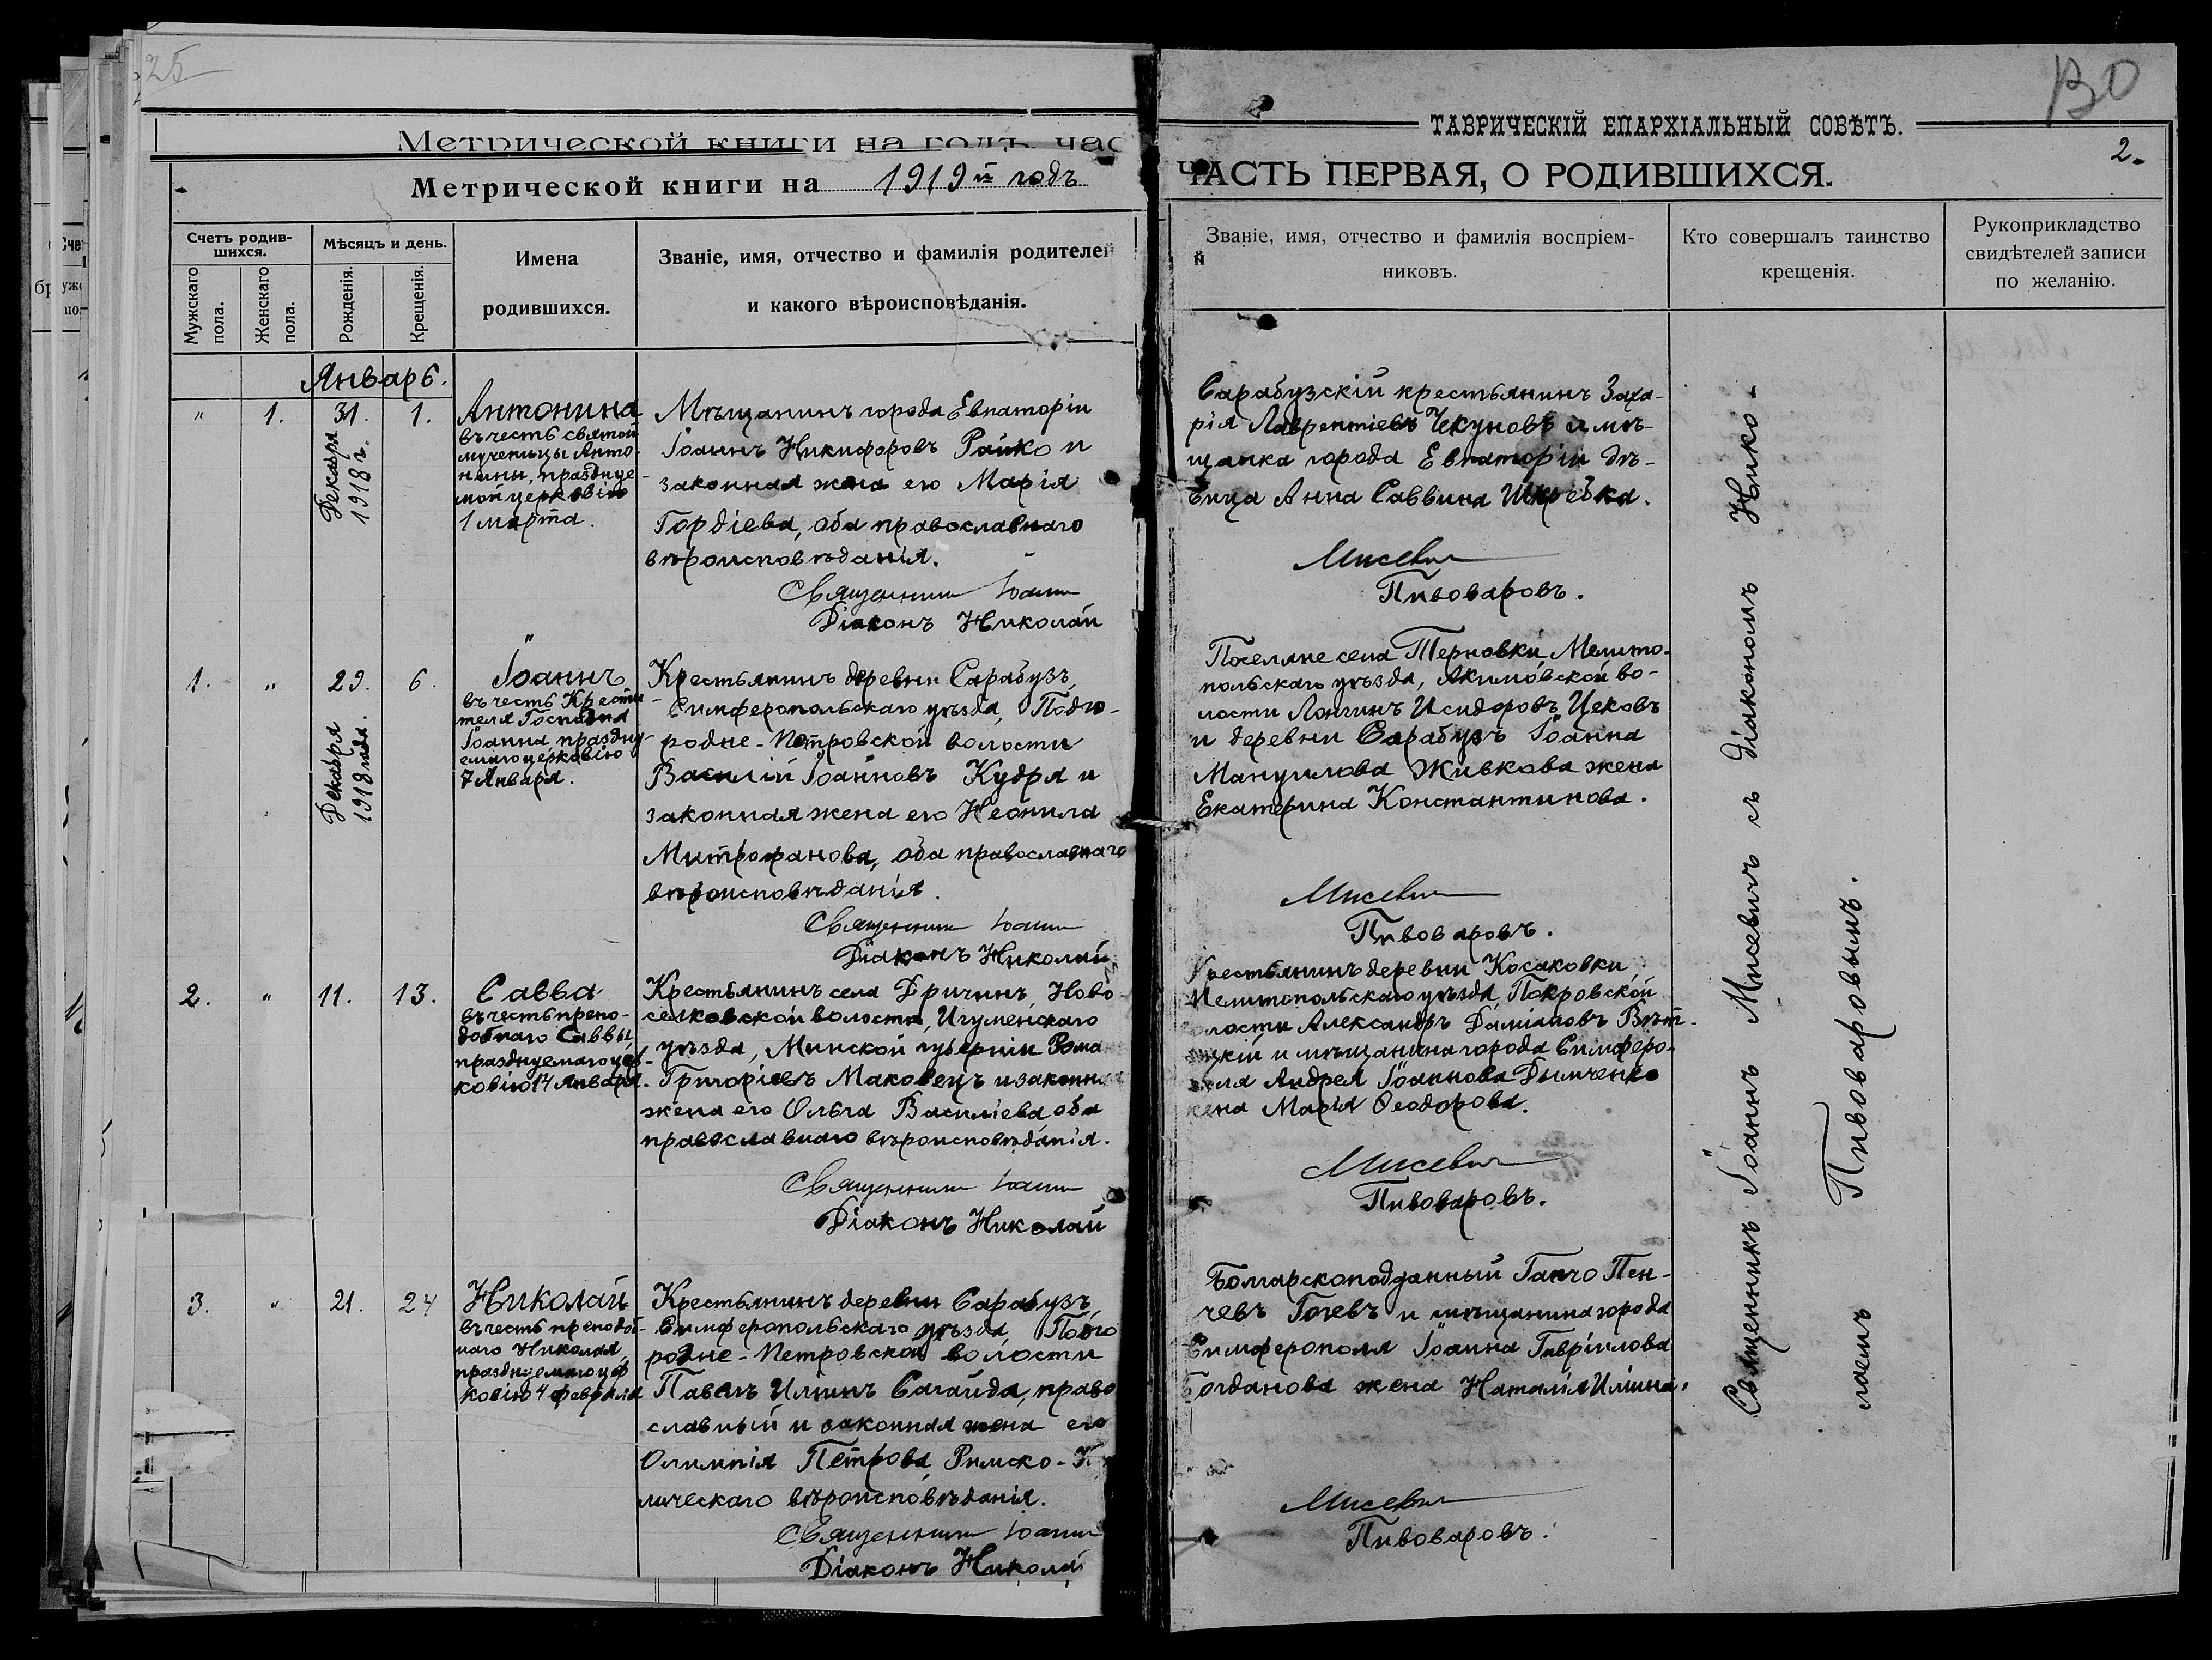 25
Метрической книги на годъ. час
Метрической книги на 1919й годъ
Счетъ родив-
шихся.
Мѣсяцъ и день.
Имена
родившихся.
Званіе, имя, отчество и фамилія родителей
и какого вѣроисповѣданія.
Мужскаго
пола.
Женскаго
пола.
Рожденія.
Крещенія.
Январь.
" 1. 31. 1.
Декабря
1918 г.
Антонина
въ честь святой
мученицы Анто-
нины, празднуе-
мой церковію
1 марта.
Мѣщанинъ города Евпаторіи
Іоаннъ Никифоровъ Райко и
законная жена его Марія
Гордіева, оба православнаго
вѣроисповѣданія.
Священникъ Іоаннъ
Діаконъ Николай
1. " 29. 6.
Декабря
1918 года.
Іоаннъ
въ честь Крести-
теля Господня
Іоанна, праздну-
емаго церковію
7 Января.
Крестьянинъ деревни Сарабузъ,
Симферопольскаго уѣзда, Подго-
родне-Петровской волости
Василій Іоанновъ Кудря и
законная жена его Неонила
Митрофанова, оба православнаго
вѣроисповѣданія.
Священникъ Іоаннъ
Діаконъ Николай
2. " 11. 13.
Савва
въ честь препо-
добнаго Саввы,
празднуемаго цер-
ковію 14 Января.
Крестьянинъ села Дричинъ, Ново-
селковской волости, Игуменскаго
уѣзда, Минской губерніи Рома
Григоріевъ Маковецъ и законная
жена его Ольга Василіева оба
православнаго вѣроисповѣданія.
Священникъ Іоаннъ
Діаконъ Николай
3. " 21. 24
Николай
въ честь преподоб-
наго Николая,
празднуемаго цер
ковію 4 февраля
Крестьянинъ деревни Сарабузъ,
Симферопольскаго уѣзда, Подго
родне-Петровской волости
Павелъ Илиинъ Сагайда, право
славный и законная жена его
Олимпія Петрова, Римско-К
лическаго вѣроисповѣданія.
Священникъ Іоаннъ
Діаконъ Николай
ТАВРИЧЕСКІЙ ЕПАРХІАЛЬНЫЙ СОВѢТЪ.
2.
ЧАСТЬ ПЕРВАЯ, О РОДИВШИХСЯ.
Званіе, имя, отчество и фамилія воспріем-
никовъ.
Кто совершалъ таинство
крещенія.
Рукоприкладство
свидѣтелей записи
по желанію.
Сарабузскій крестьянинъ Заха-
рія Лаврентіевъ Чекуновъ и мѣ-
щанка города Евпаторіи дѣ-
вица Анна Саввина Шкревка.
Мисевич
Пивоваровъ.
Поселяне села Терновки, Мелито-
польскаго уѣзда, Акимовской во-
лости Лонгинъ Исидоровъ Цековъ
и деревни Сарабузъ Іоанна
Мануилова Живкова жена
Екатерина Константинова.
Мисевич
Пивоваровъ.
Крестьянинъ деревни Косаковки,
Мелитопольскаго уѣзда, Покровской
волости Александръ Даміановъ Вѣт-
скій и мѣщанина города Симферо-
поля Андрея Іоаннова Дымченко
жена Марія Ѳеодорова.
Мисевич
Пивоваровъ.
Болгарскоподданный Ганчо Пен-
чевъ Гочевъ и мѣщанина города
Симферополя Іоанна Гавріилова
Богданова жена Наталія Иліина.
Мисевич
Пивоваровъ.
Священникъ Іоаннъ Мисевичъ съ діакономъ Нико-
лаемъ Пивоваровымъ.